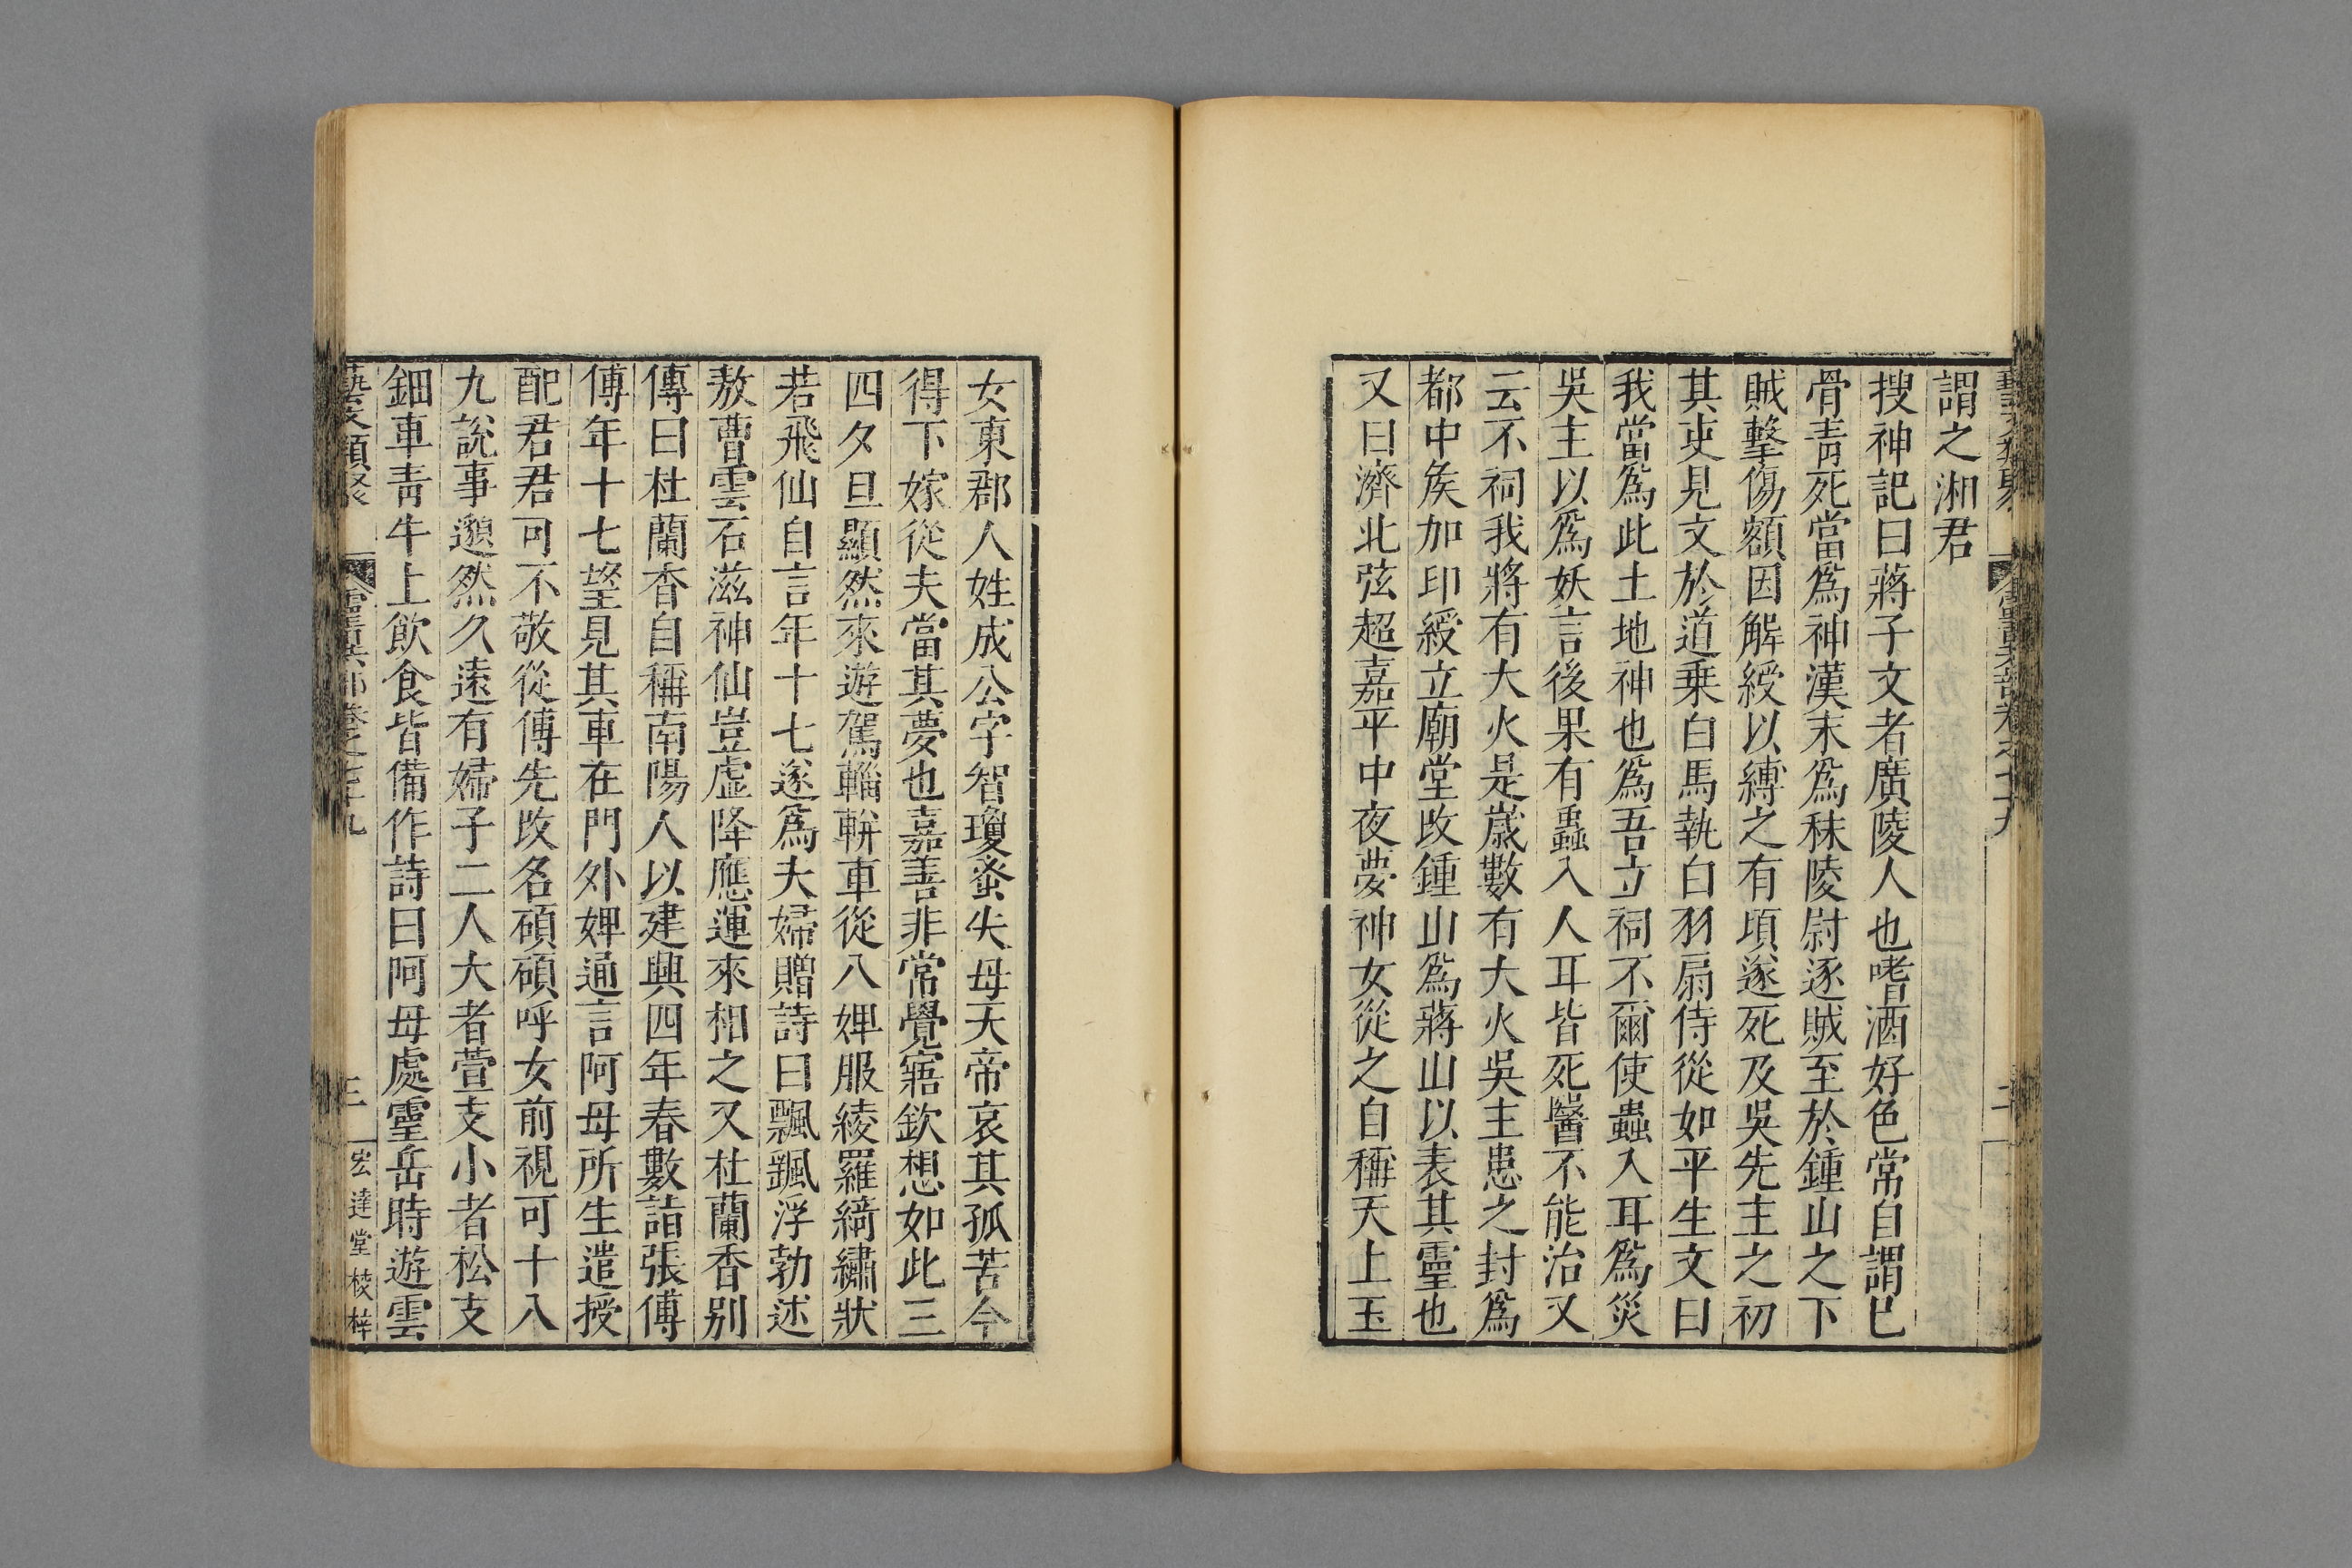 謂之湘君
搜神記曰蔣子文者廣陵人也嗜酒好色常自謂已
骨青死當爲神漢末爲秣陵尉逐賊至於鍾山之下
賊擊傷額因解綬以縛之有頃遂死及吳先主之初
其吏見文於道乗白馬執白羽扇侍從如平生文曰
我當爲此土地神也爲吾立祠不爾使蟲入耳爲災
吳主以爲妖言後果有蟲入人耳皆死醫不能治又
云不祠我將有大火是歲數有大火吳主患之封爲
都中矦加印綬立廟堂改鍾山爲蔣山以表其靈也
又曰濟北弦超嘉平中夜夢神女從之自稱天上玉
女東郡人姓成公字智瓊蚤失母天帝哀其孤苦今
得下嫁從夫當其夢也嘉善非常覺寤欽想如此三
四夕旦顯然來遊駕輜軿車從八婢服綾羅綺繡狀
若飛仙自言年十七遂爲夫婦贈詩曰飄颻浮勃述
敖曹雲石滋神仙豈虛降應運來相之又杜蘭香别
傳曰杜蘭香自稱南陽人以建興四年春數詣張傅
傅年十七望見其車在門外婢通言阿母所生遣授
配君君可不敬從傅先改名碩碩呼女前視可十八
九說事邈然久遠有婦子二人大者萱支小者松支
鈿車青牛上飲食皆備作詩曰阿母處靈岳時遊雲
藝文類聚 靈異部卷之七十九 三 宏達堂校梓